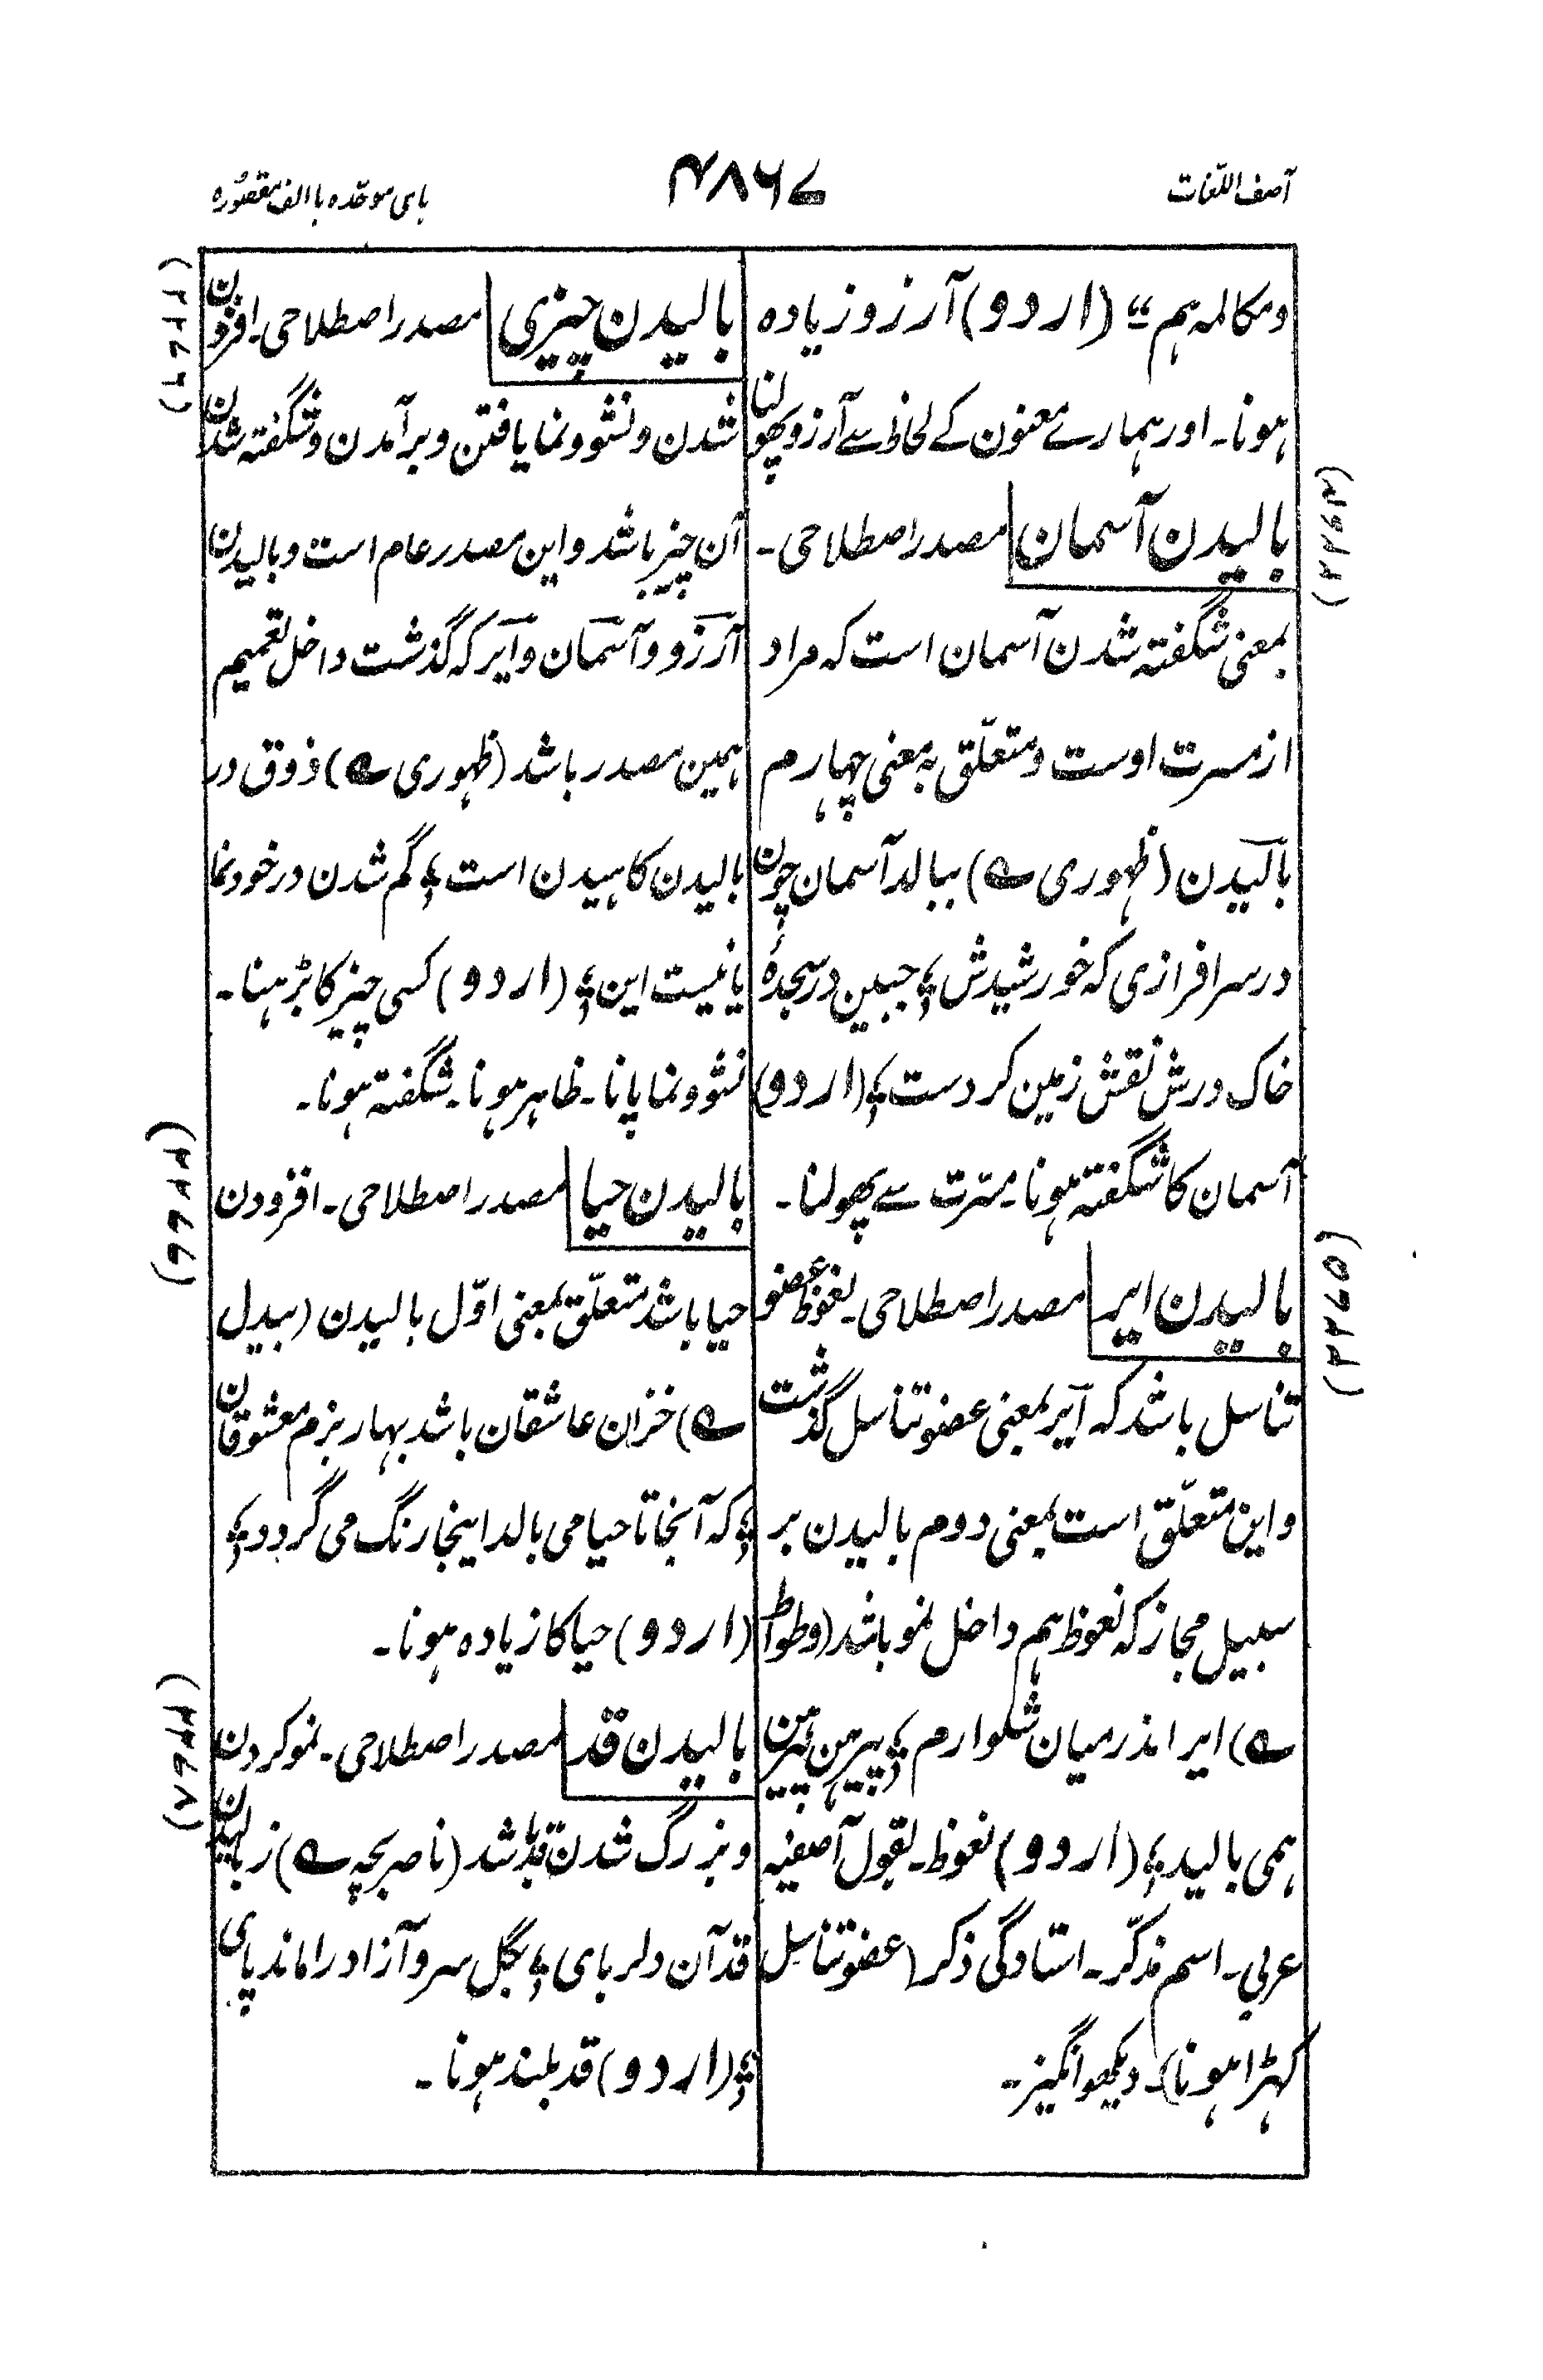 آصف اللّغات
۴۸۶۷
بای موحّدہ باالف مقصُورہ
ومکالمہ ہم ؎ (اردو) آرزو زیادہ
ہونا۔ اور ہمارے معنون کے لحاظ سے آرزو پھولنا
بالیدن آسمان مصدر اصطلاحی۔
بمعنی شگفتہ شدن آسمان است کہ مراد
از مسرت اوست و متعلّق بہ معنی چہارم
بالیدن (ظہوری ؎) ببالد آسمان چون
در سرافرازی کہ خورشیدش ؛ جبین در سجدۂ
خاک درش نقش زمین کردست ؛ (اردو)
آسمان کا شگفتہ ہونا۔ مسّرت سے پھولنا۔
(۲۲۶۵)
بالیدن ایر مصدر اصطلاحی۔ نعوظ عضو
تناسل باشد کہ آیر بمعنی عضو تناسل گذشت
و این متعلّق است بمعنی دوم بالیدن بر
سبیل مجاز کہ نعوظ ہم داخل نمو باشد (وطواط
؎) ایر اندر میان شلوارم ؛ پیرہن پیرہن
ہمی بالید ؛ (اردو) نعوظ۔ بقول آصفیہ
عربی۔ اسم مذکّر۔ استادگی ذکر (عضو تناسل
کہڑا ہونا)۔ دیکھو انگیز۔
بالیدن چیزی مصدر اصطلاحی۔ افزون
شدن و نشوونما یافتن و برآمدن و شگفتہ شدن
آن چیز باشد و این مصدر عام است و بالیدن
آرزو و آسمان و ایر کہ گذشت داخل تعمیم
ہمین مصدر باشد (ظہوری ؎) ذوق در
بالیدن کاہیدن است ؛ گم شدن در خود نما
یا نیست این ؛ (اردو) کسی چیز کا بڑہنا۔
نشوونما پانا۔ ظاہر ہونا۔ شگفتہ ہونا۔
بالیدن حیا مصدر اصطلاحی۔ افزودن
حیا باشد متعلّق بمعنی اوّل بالیدن (بیدل
؎) خزان عاشقان باشد بہار بزم معشوقان
؛ کہ آنجا تا حیا می بالد اینجا رنگ می گردد ؛
(اردو) حیا کا زیادہ ہونا۔
بالیدن قد مصدر اصطلاحی۔ نمو کردن
و بزرگ شدن قد باشد (ناصر بچہ ؎) ز بالیدن
قد آن دلربای ؛ بگل سرو آزاد را ماند پای
؛ (اردو) قد بلند ہونا۔